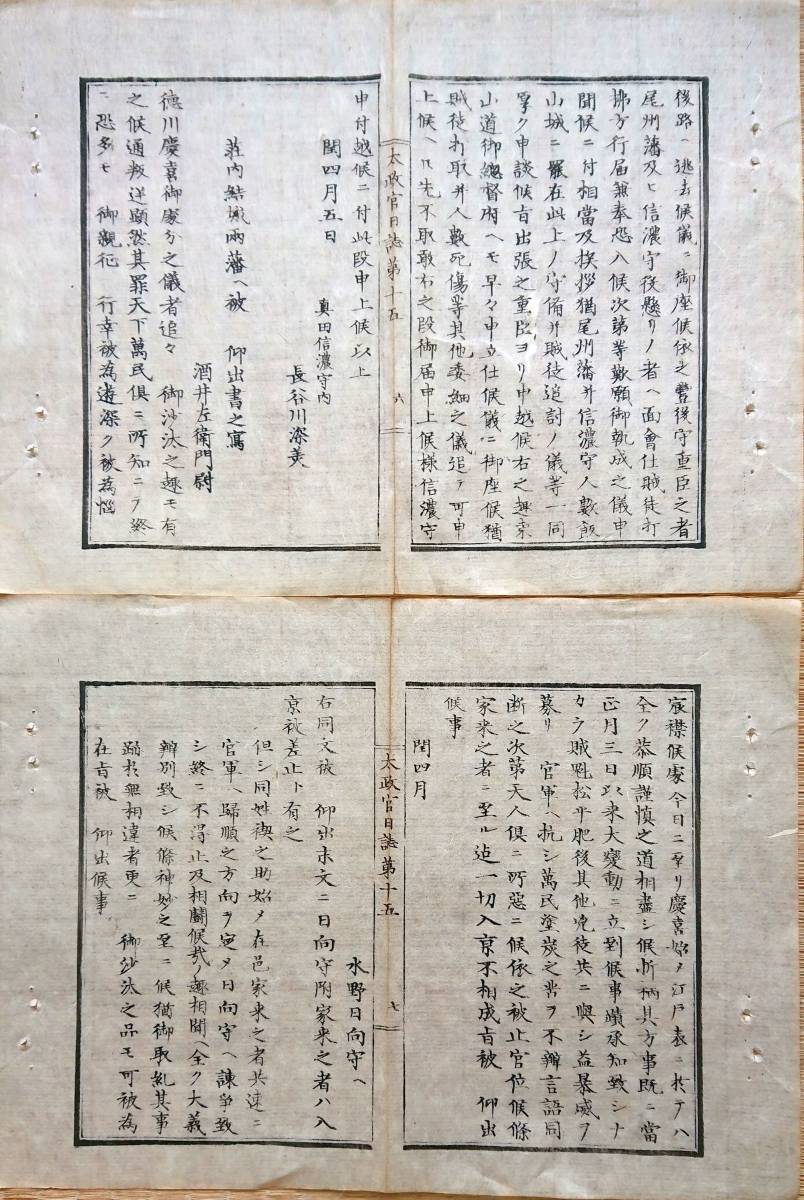 後路ヘ逃去候儀ニ御座候依之豊後守重臣之者
尾州藩及ヒ信濃守後懸リノ者ヘ面會仕賊徒打
拂方行届無奉恐入候次第等歎願御執成之儀申
聞候ニ付相當及挨拶猶尾州藩并信濃守人數飯
山城ニ罷在此上ノ守備并賊徒追討ノ儀等一同
厚ク申談候旨出張之重臣ヨリ申越候右之趣東
山道御總督府ヘモ早々申立仕候儀ニ御座候猶
賊徒打取并人數死傷等其他委細之儀追テ可申
上候ヘ共先不取敢右之段御届申上候様信濃守
太政官日誌第十五
六
申付越候ニ付此段申上候以上
閏四月五日
真田信濃守内
長谷川深美
荘内結城兩藩ヘ被 仰出書之寫
酒井左衛門尉
徳川慶喜御處分之儀者追々 御沙汰之趣モ有
之候通叛逆顕然其罪天下萬民倶ニ所知ニテ終
ニ恐多モ 御親征 行幸被為遊深ク被為惱
宸襟候處今日ニ至リ慶喜始メ江戸表ニ於テハ
全ク恭順謹慎之道相盡シ候折柄其方事既ニ當
正月三日以来大變動ニ立到候事蹟承知致シナ
カラ賊魁松平肥後其他兇徒共ニ與シ益暴威ヲ
募リ 官軍ヘ抗シ萬民塗炭之苦ヲ不辨言語同
断之次第天人倶ニ所惡ニ候依之被止官位候條
家来之者ニ至ル迠一切入京不相成旨被 仰出
候事
閏四月
太政官日誌第十五
七
水野日向守ヘ
右同文被 仰出末文ニ日向守附家来之者ハ入
京被差止ト有之
但シ同姓禊之助始メ在邑家来之者共速ニ
官軍ヘ歸順之方向ヲ定メ日向守ヘ諫爭致
シ終ニ不得止及相鬪候哉ノ趣相聞ヘ全ク大義
辨別致シ候條神妙之至ニ候猶御取糺其事
蹟於無相違者更ニ 御沙汰之品モ可被為
在旨被 仰出候事